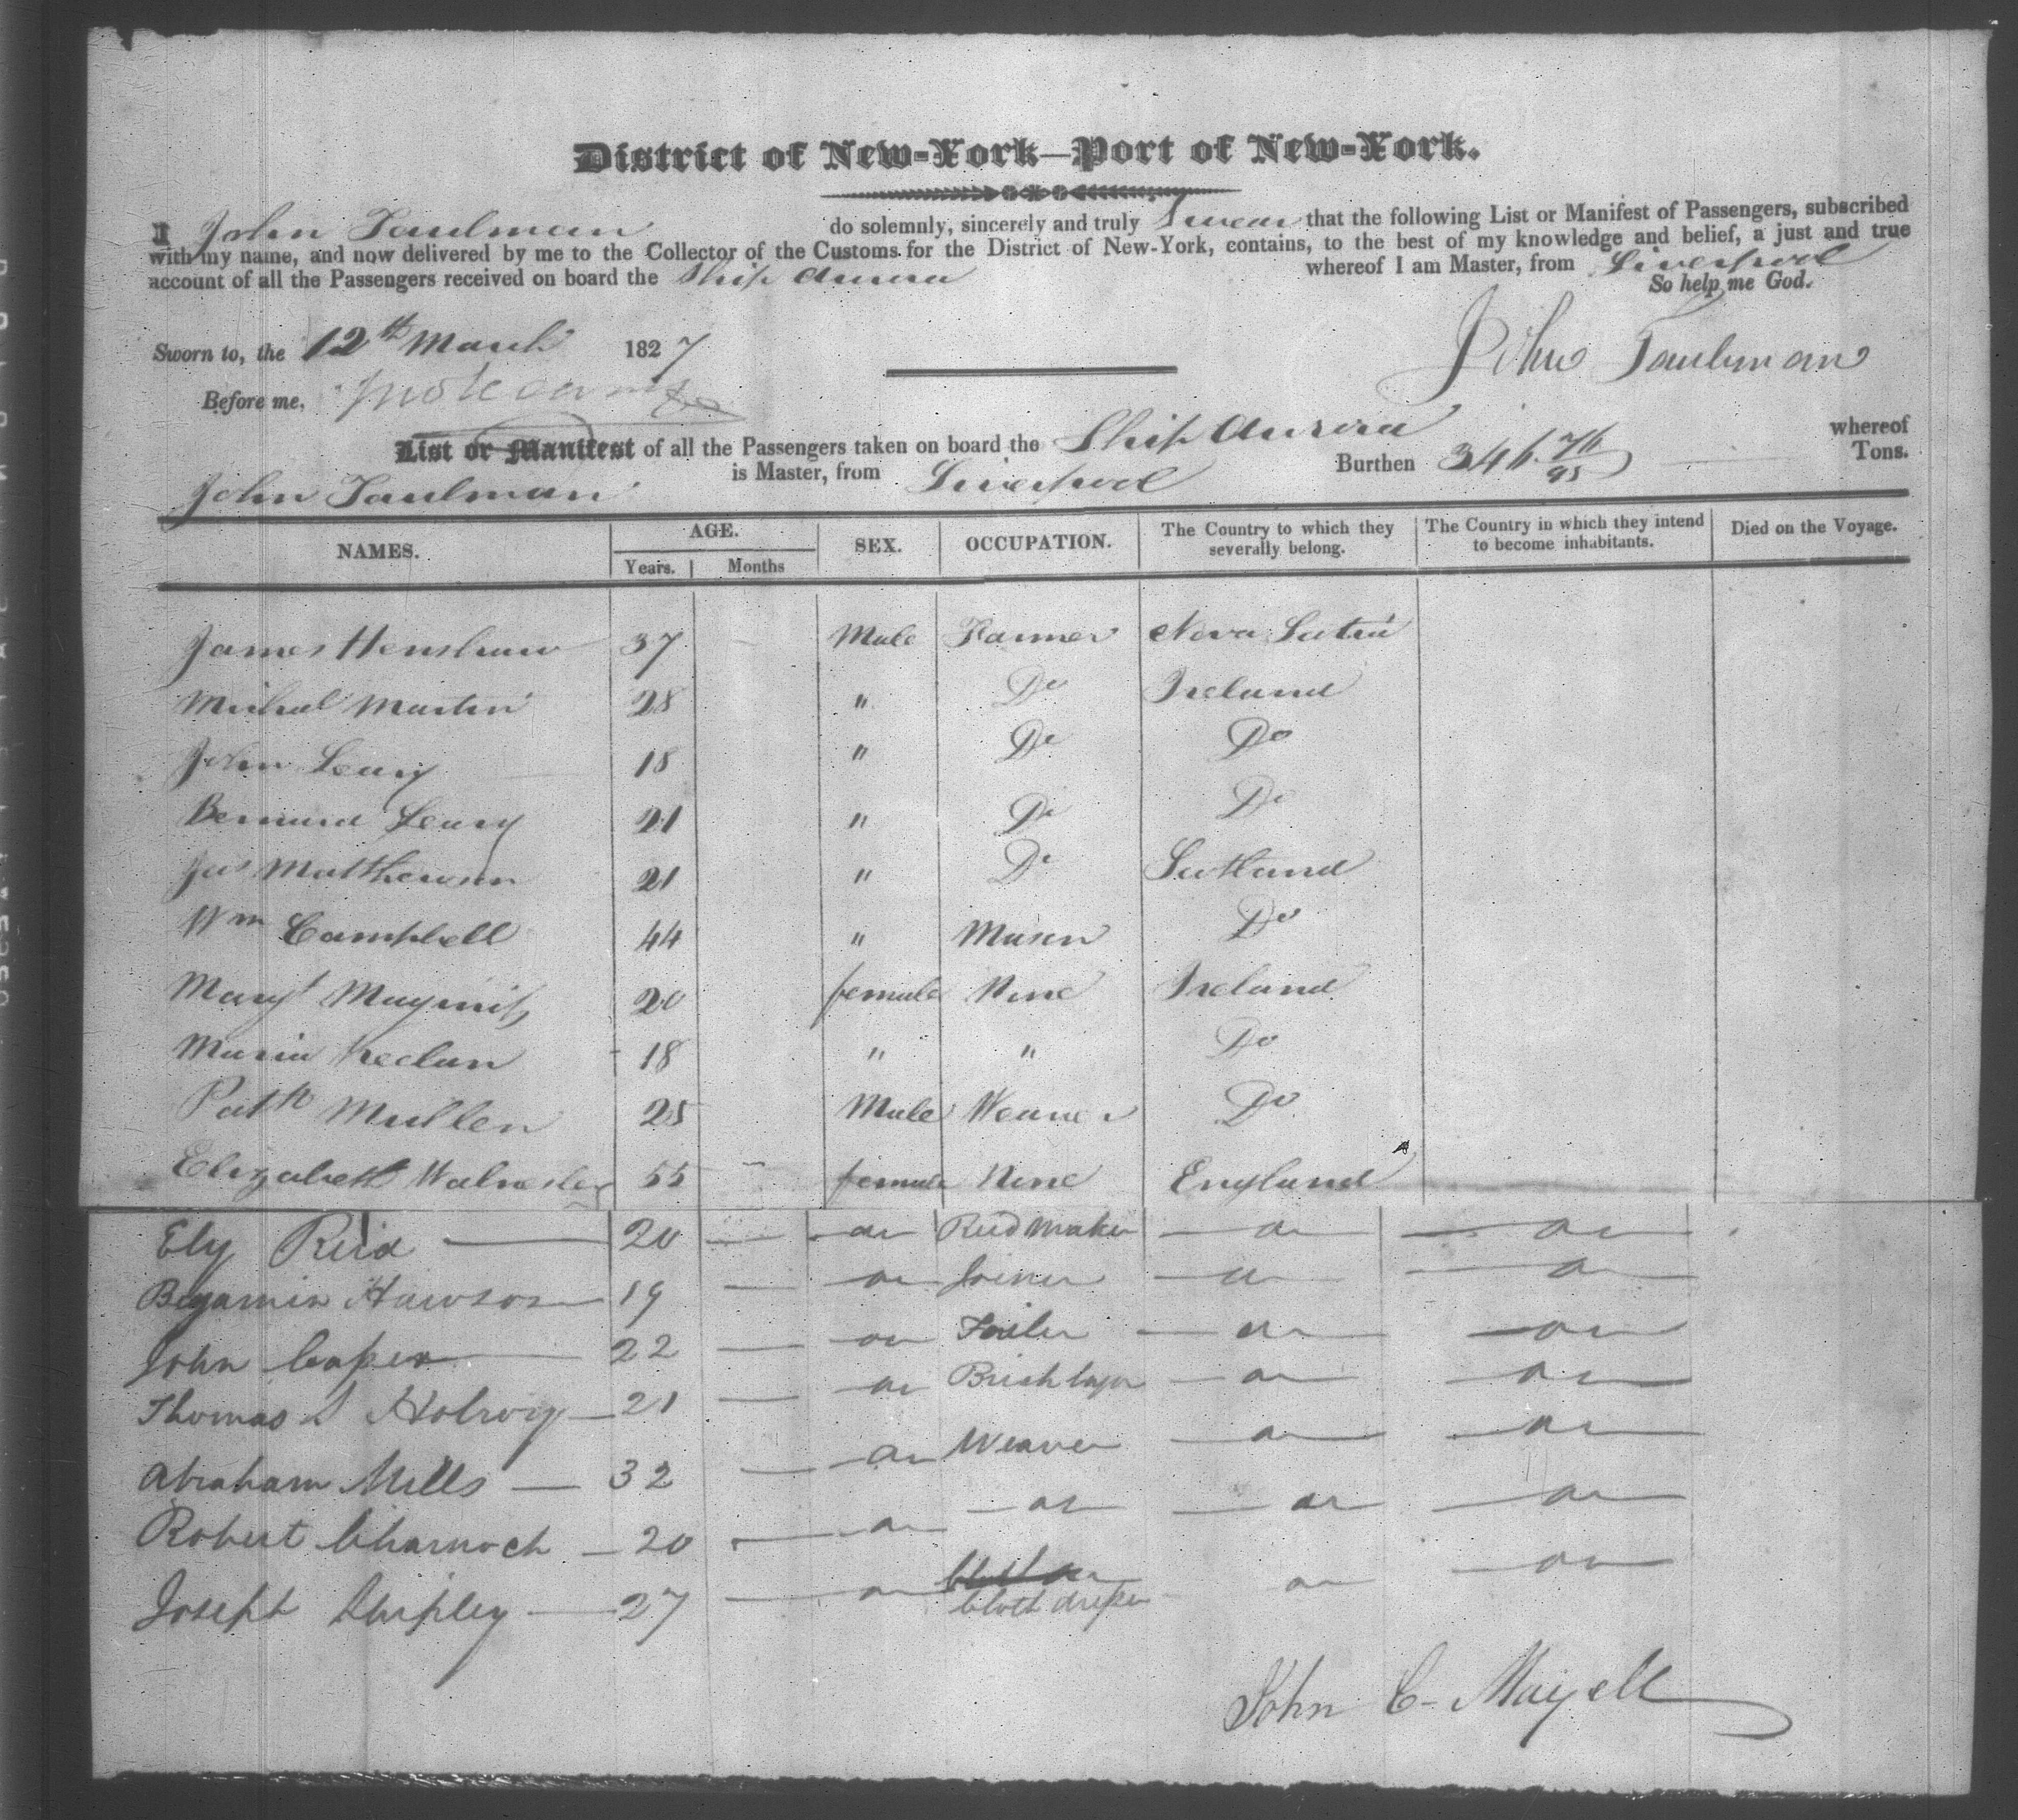 District of New-York—Port of New-York.
I John Taulman do solemnly, sincerely and truly Swear that the following List or Manifest of Passengers, subscribed
with my name, and now delivered by me to the Collector of the Customs for the District of New-York, contains, to the best of my knowledge and belief, a just and true
account of all the Passengers received on board the Ship Aurora whereof I am Master, from Liverpool
So help me God.
Sworn to, the 12th March 1827
John Taulman
Before me,
List or Manifest of all the Passengers taken on board the Ship Aurora whereof
John Taulman is Master, from Liverpool Burthen 346 76/95 Tons.
NAMES. AGE. SEX. OCCUPATION. The Country to which they severally belong. The Country in which they intend to become inhabitants. Died on the Voyage.
Years. Months
James Henshaw 37 Male Farmer Nova Scotia
Michael Martin 28 " Do Ireland
John Leary 18 " Do Do
Bernard Leary 21 " Do Do
Jas Matthewson 21 " Do Scotland
Wm Campbell 44 " Mason Do
Margt 20 female None Ireland
Maria Keelan 18 " " Do
Patk Mullen 25 Male Weaver Do
Elizabeth Walmsley 55 female None England
Ely Reid 20 do Reed maker do do
Benjamin Hawson 19 do Joiner do do
John Caper 22 do do do
Thomas Holroyd 21 do Bricklayer do do
Abraham Mills 32 do Weaver do do
Robert Charnock 20 do do do do
Joseph Shipley 27 do Cloth dresser do do
John C- Mayell